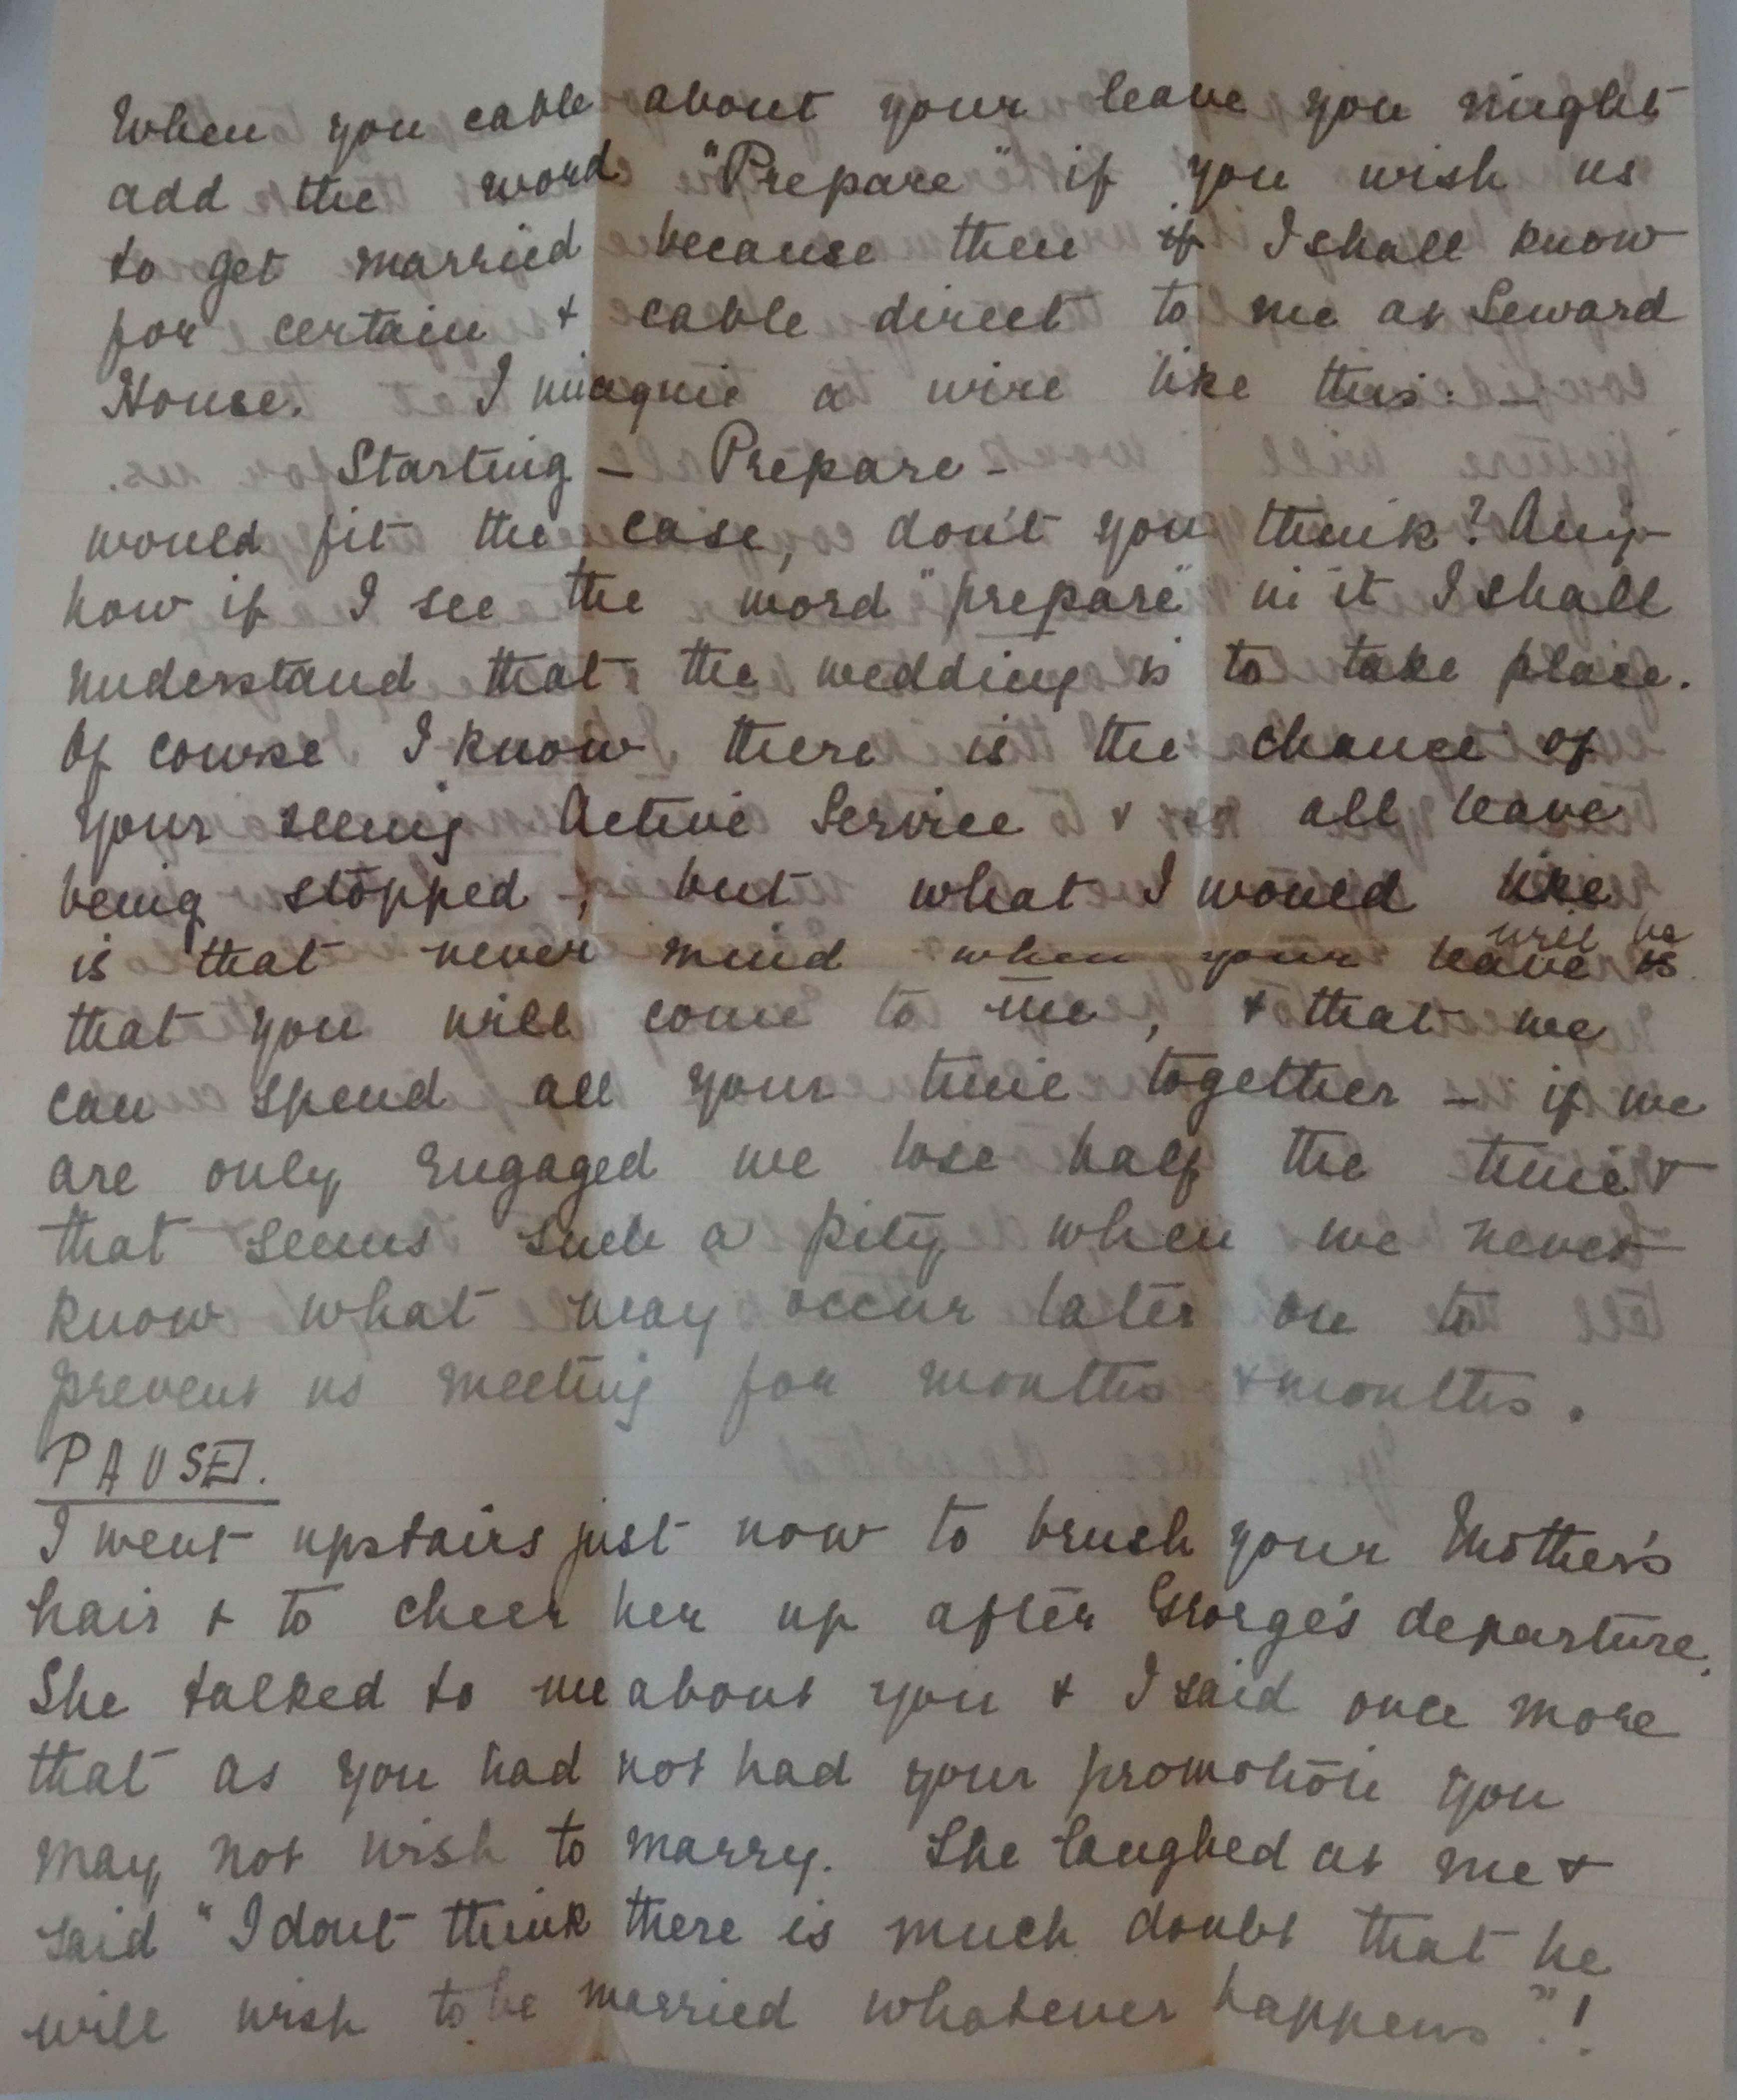 When you cable about your leave you might
add the word "Prepare" if you wish us
to get married because then if I shall know
for certain & cable direct to me at Seward
House. I imagine a wire like this: —
Starting — Prepare -
would fit the case, don't you think? Any-
how if I see the word "prepare" in it I shall
understand that the wedding is to take place.
Of course I know there is the chance of
your seeing Active Service & so all leave
being stopped; but what I would like
is that never mind when your leave is will be
that you will come to me, & that we
can spend all your time together — if we
are only engaged we lose half the time &
that seems such a pity when we never
know what may occur later on to
prevent us meeting for months & months.
PAUSE.
I went upstairs just now to brush your Mother's
hair & to cheer her up after George's departure.
She talked to me about you & I said once more
that as you had not had your promotion you
may not wish to marry. She laughed at me &
said "I dont think there is much doubt that he
will wish to be married whatever happens"!